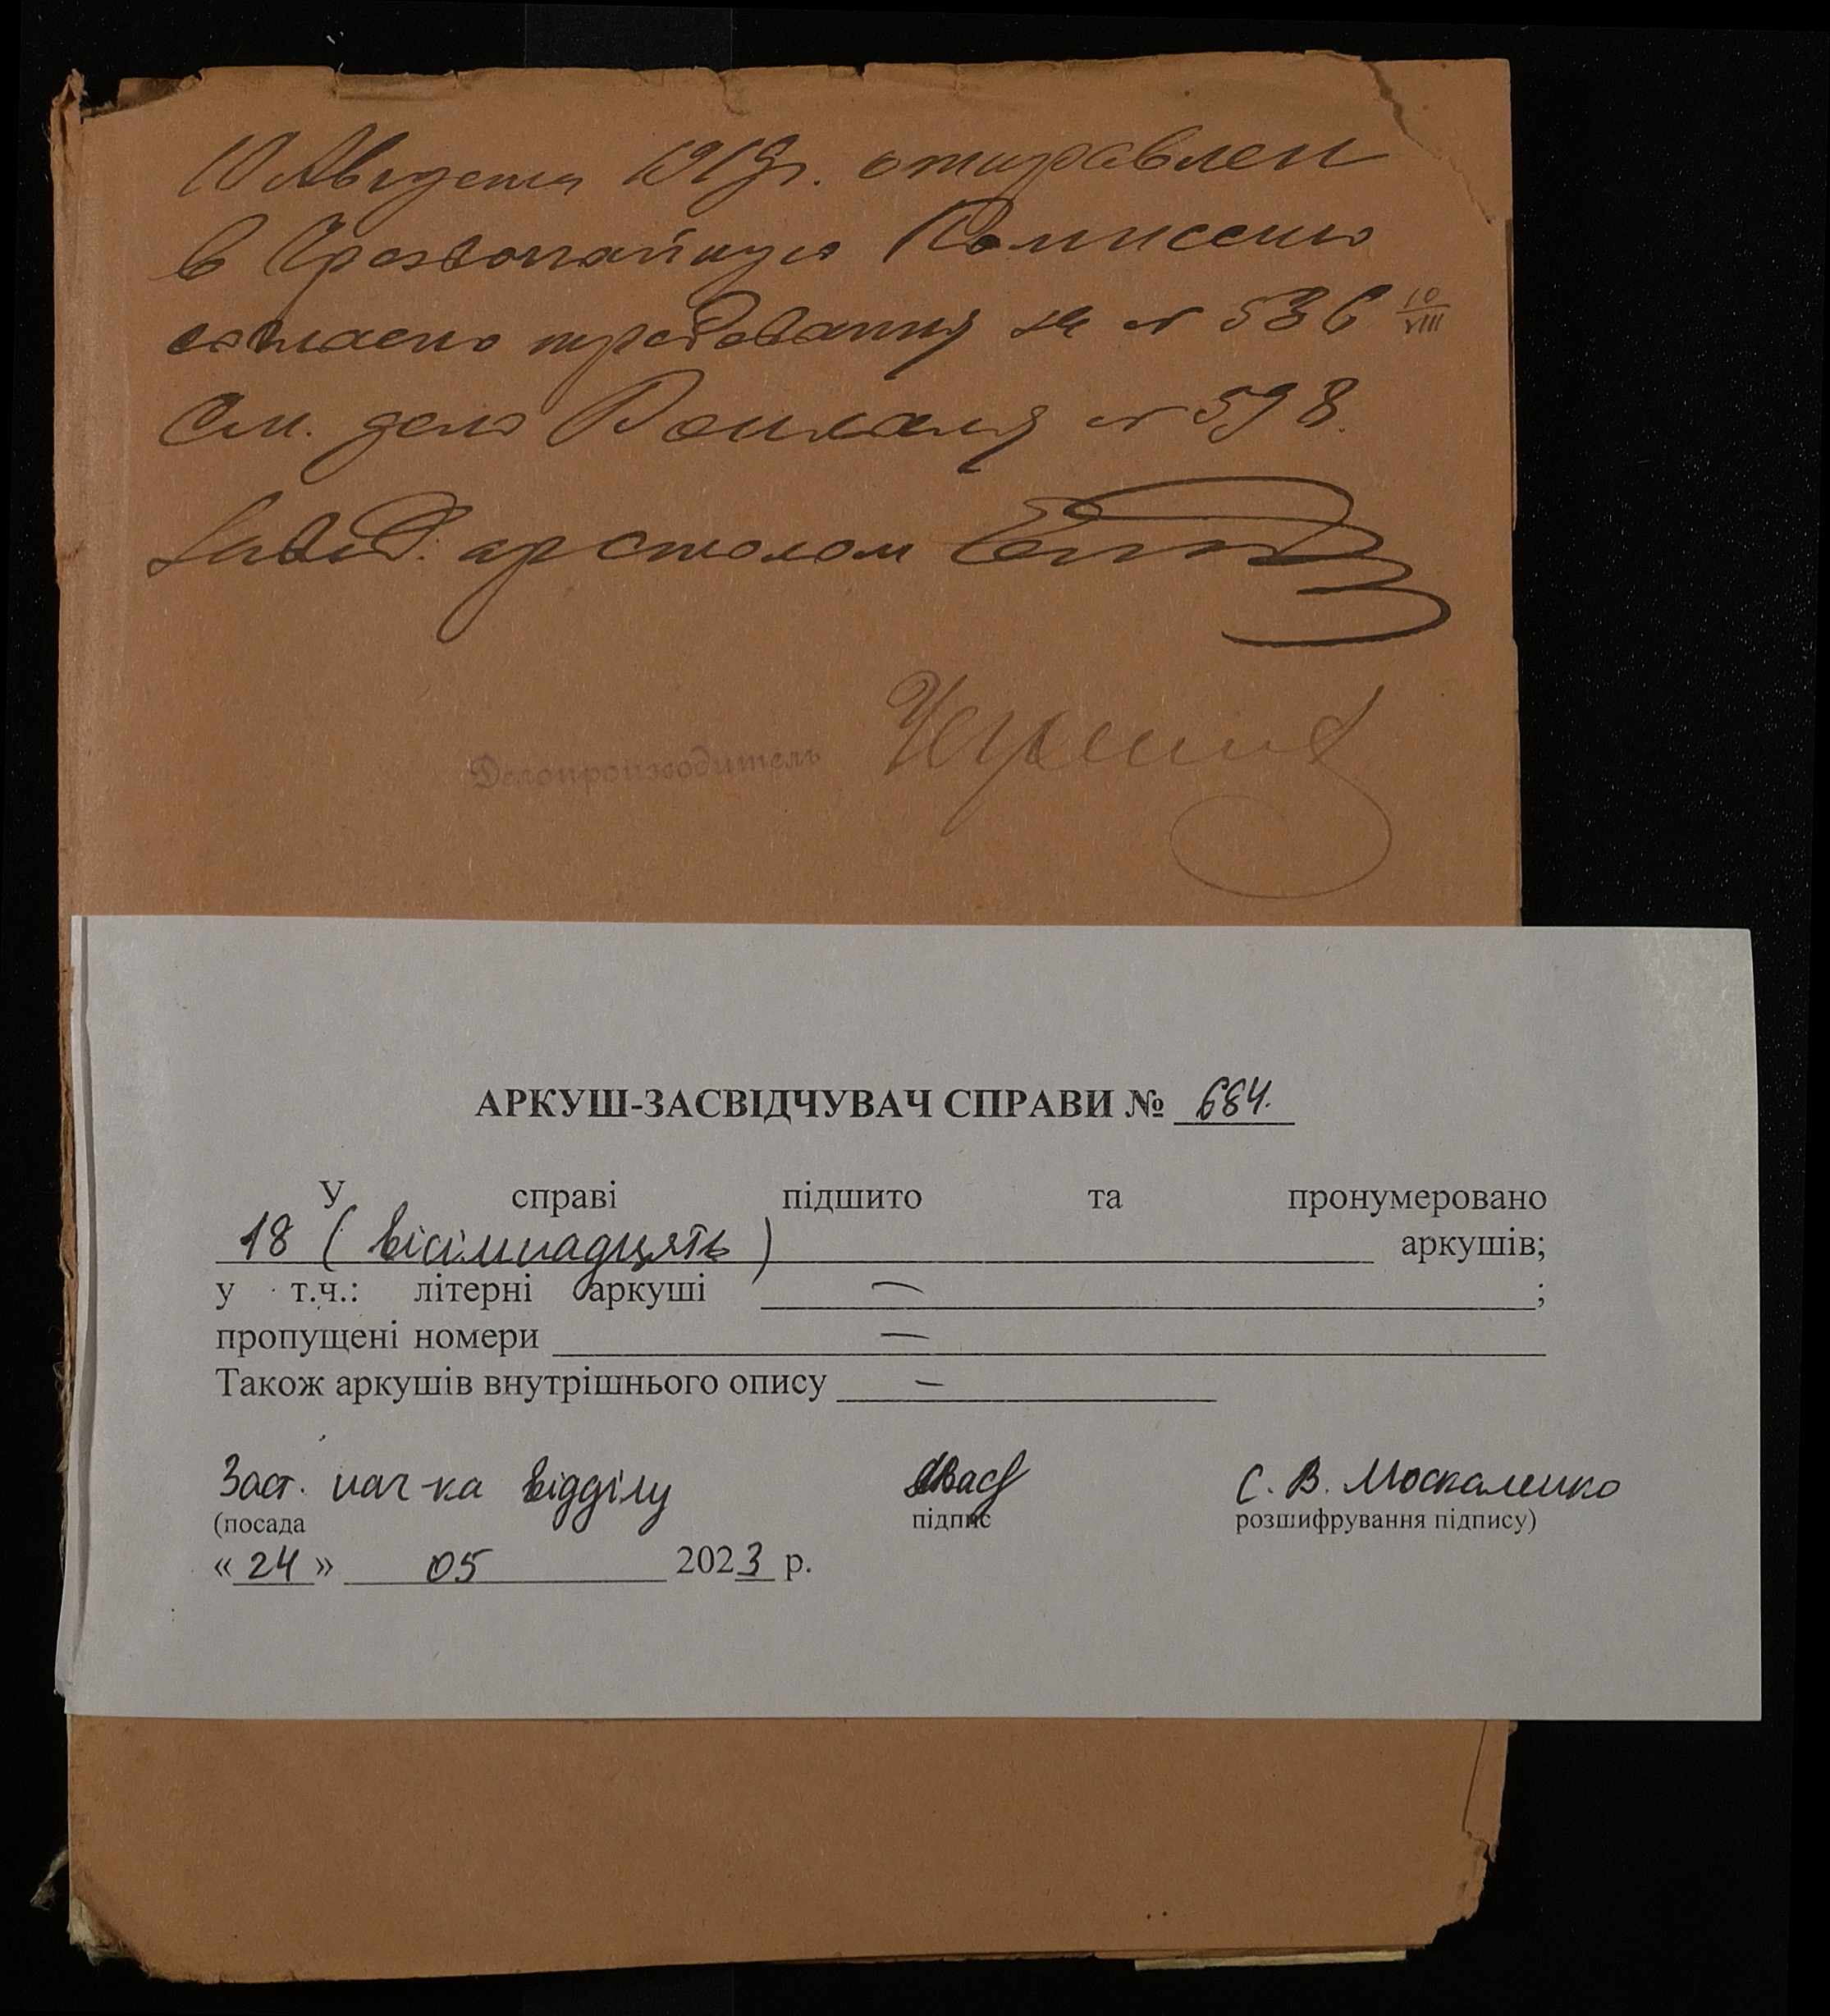 10 Августа 1919г. отправлен
в Чрезвычайную Комиссию
согласно требования за № 536 10/VIII
См. дело № 598.
Завед. ар столом
Делопроизводитель
АРКУШ-ЗАСВІДЧУВАЧ СПРАВИ № 684.
У справі підшито та пронумеровано
18 (вісімнадцять) аркушів;
у т.ч.: літерні аркуші — ;
пропущені номери —
Також аркушів внутрішнього опису —
Заст. нач-ка відділу С. В. Москаленко
(посада підпис розшифрування підпису)
« 24 » 05 2023 р.